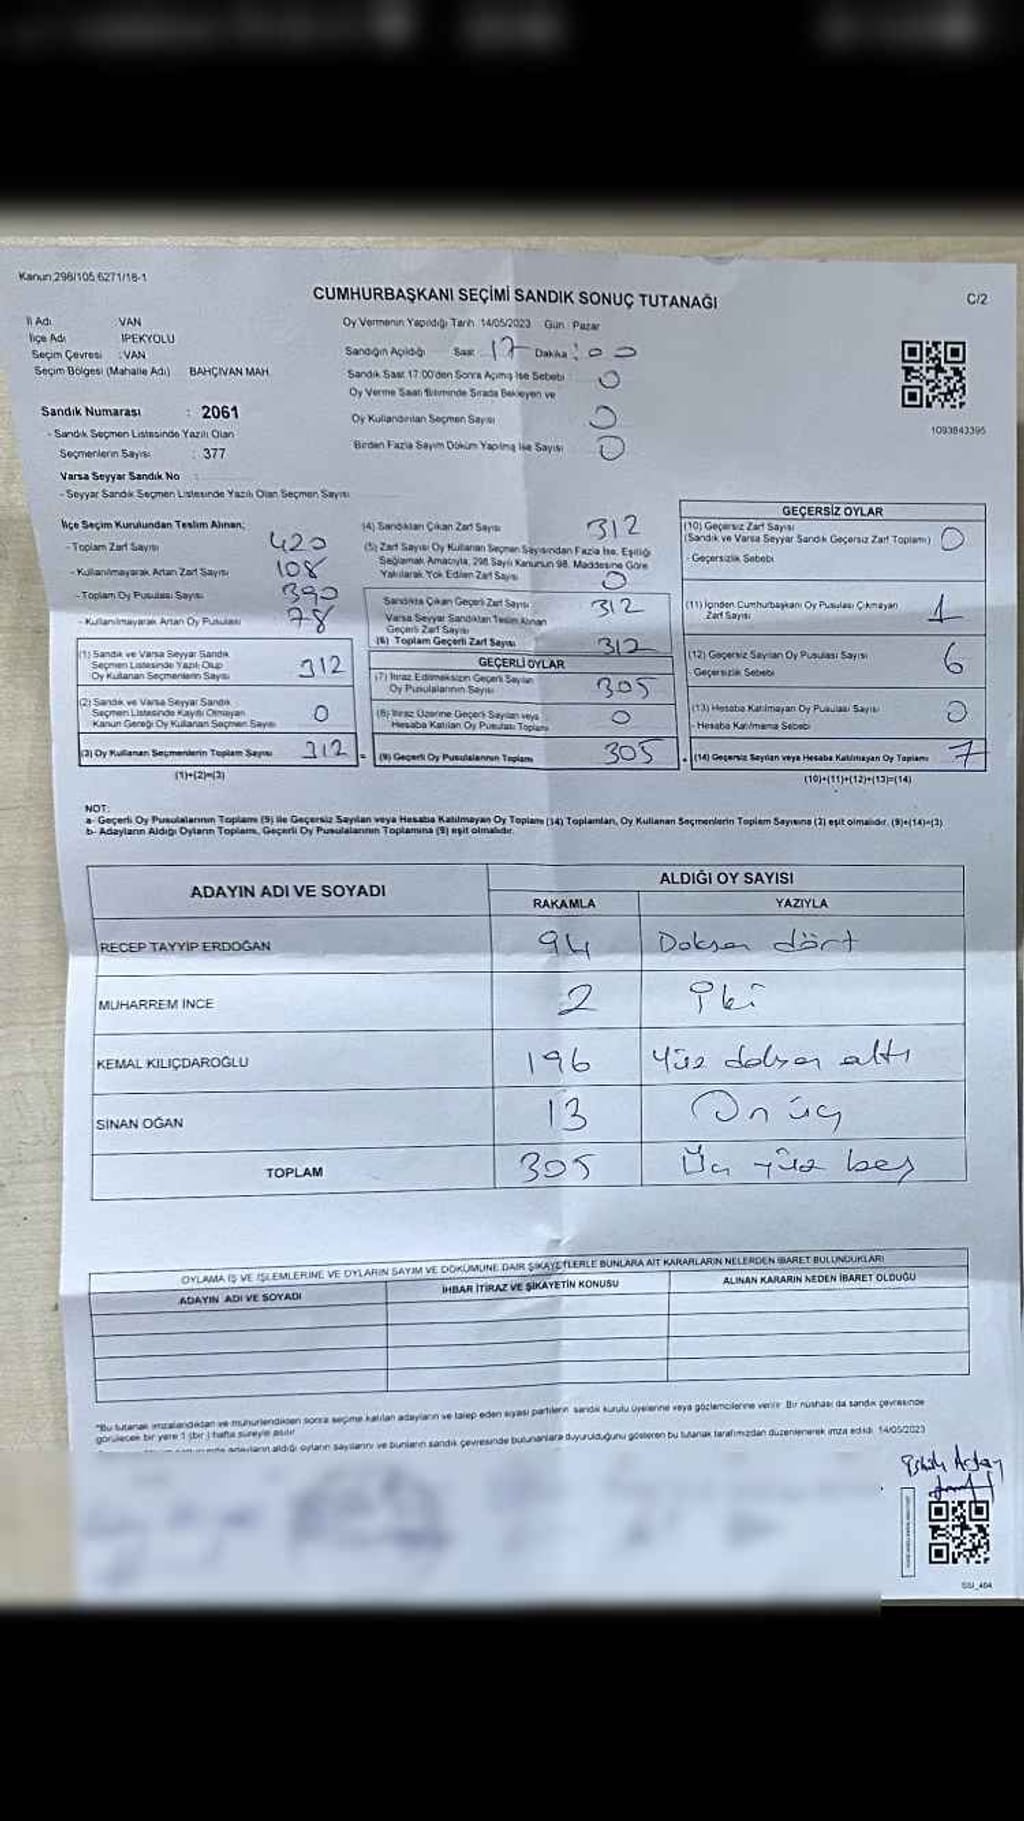 Kanun:298/105,6271/18-1
CUMHURBAŞKANI SEÇİMİ SANDIK SONUÇ TUTANAĞI
C/2
İl Adı : VAN
İlçe Adı : İPEKYOLU
Seçim Çevresi : VAN
Seçim Bölgesi (Mahalle Adı) BAHÇIVAN MAH.
Oy Vermenin Yapıldığı Tarih: 14/05/2023 Gün: Pazar
Sandığın Açıldığı Saat: 17 Dakika: 00
Sandık Saat 17.00'den Sonra Açılmış İse Sebebi : 0
Oy Verme Saati Bitiminde Sırada Bekleyen ve
Oy Kullandırılan Seçmen Sayısı 0
Birden Fazla Sayım Döküm Yapılmış İse Sayısı : 0
1093843395
Sandık Numarası : 2061
- Sandık Seçmen Listesinde Yazılı Olan
Seçmenlerin Sayısı : 377
Varsa Seyyar Sandık No :
- Seyyar Sandık Seçmen Listesinde Yazılı Olan Seçmen Sayısı
İlçe Seçim Kurulundan Teslim Alınan;
- Toplam Zarf Sayısı 420
- Kullanılmayarak Artan Zarf Sayısı 108
- Toplam Oy Pusulası Sayısı 390
- Kullanılmayarak Artan Oy Pusulası 78
(1) Sandık ve Varsa Seyyar Sandık
Seçmen Listesinde Yazılı Olup
Oy Kullanan Seçmenlerin Sayısı 312
(2) Sandık ve Varsa Seyyar Sandık
Seçmen Listesinde Kayıtlı Olmayan
Kanun Gereği Oy Kullanan Seçmen Sayısı 0
(3) Oy Kullanan Seçmenlerin Toplam Sayısı 312
(1)+(2)=(3)
(4) Sandıktan Çıkan Zarf Sayısı 312
(5) Zarf Sayısı Oy Kullanan Seçmen Sayısından Fazla İse, Eşitliği
Sağlamak Amacıyla, 298 Sayılı Kanunun 98. Maddesine Göre
Yakılarak Yok Edilen Zarf Sayısı 0
Sandıkta Çıkan Geçerli Zarf Sayısı 312
Varsa Seyyar Sandıktan Teslim Alınan
Geçerli Zarf Sayısı
(6) Toplam Geçerli Zarf Sayısı 312
GEÇERLİ OYLAR
(7) İtiraz Edilmeksizin Geçerli Sayılan
Oy Pusulalarının Sayısı 305
(8) İtiraz Üzerine Geçerli Sayılan veya
Hesaba Katılan Oy Pusulası Toplamı 0
= (9) Geçerli Oy Pusulalarının Toplamı 305
GEÇERSİZ OYLAR
(10) Geçersiz Zarf Sayısı
(Sandık ve Varsa Seyyar Sandık Geçersiz Zarf Toplamı) 0
- Geçersizlik Sebebi:
(11) İçinden Cumhurbaşkanı Oy Pusulası Çıkmayan
Zarf Sayısı 1
(12) Geçersiz Sayılan Oy Pusulası Sayısı 6
- Geçersizlik Sebebi:
(13) Hesaba Katılmayan Oy Pusulası Sayısı 0
- Hesaba Katılmama Sebebi:
+ (14) Geçersiz Sayılan veya Hesaba Katılmayan Oy Toplamı 7
(10)+(11)+(12)+(13)=(14)
NOT:
a- Geçerli Oy Pusulalarının Toplamı (9) ile Geçersiz Sayılan veya Hesaba Katılmayan Oy Toplamı (14) Toplamları, Oy Kullanan Seçmenlerin Toplam Sayısına (3) eşit olmalıdır. (9)+(14)=(3)
b- Adayların Aldığı Oyların Toplamı, Geçerli Oy Pusulalarının Toplamına (9) eşit olmalıdır.
ADAYIN ADI VE SOYADI
ALDIĞI OY SAYISI
RAKAMLA YAZIYLA
RECEP TAYYİP ERDOĞAN 94 Doksan dört
MUHARREM İNCE 2 İki
KEMAL KILIÇDAROĞLU 196 Yüz doksan altı
SİNAN OĞAN 13 On üç
TOPLAM 305 Üç yüz beş
OYLAMA İŞ VE İŞLEMLERİNE VE OYLARIN SAYIM VE DÖKÜMÜNE DAİR ŞİKAYETLERLE BUNLARA AİT KARARLARIN NELERDEN İBARET BULUNDUKLARI
ADAYIN ADI VE SOYADI
İHBAR İTİRAZ VE ŞİKAYETİN KONUSU
ALINAN KARARIN NEDEN İBARET OLDUĞU
*Bu tutanak imzalandıktan ve mühürlendikten sonra seçime katılan adayların ve talep eden siyasi partilerin sandık kurulu üyelerine veya gözlemcilerine verilir. Bir nüshası da sandık çevresinde
görülecek bir yere 1 (bir) hafta süreyle asılır.
adayların aldığı oyların sayılarını ve bunların sandık çevresinde bulunanlara duyurulduğunu gösteren bu tutanak tarafımızdan düzenlenerek imza edildi. 14/05/2023